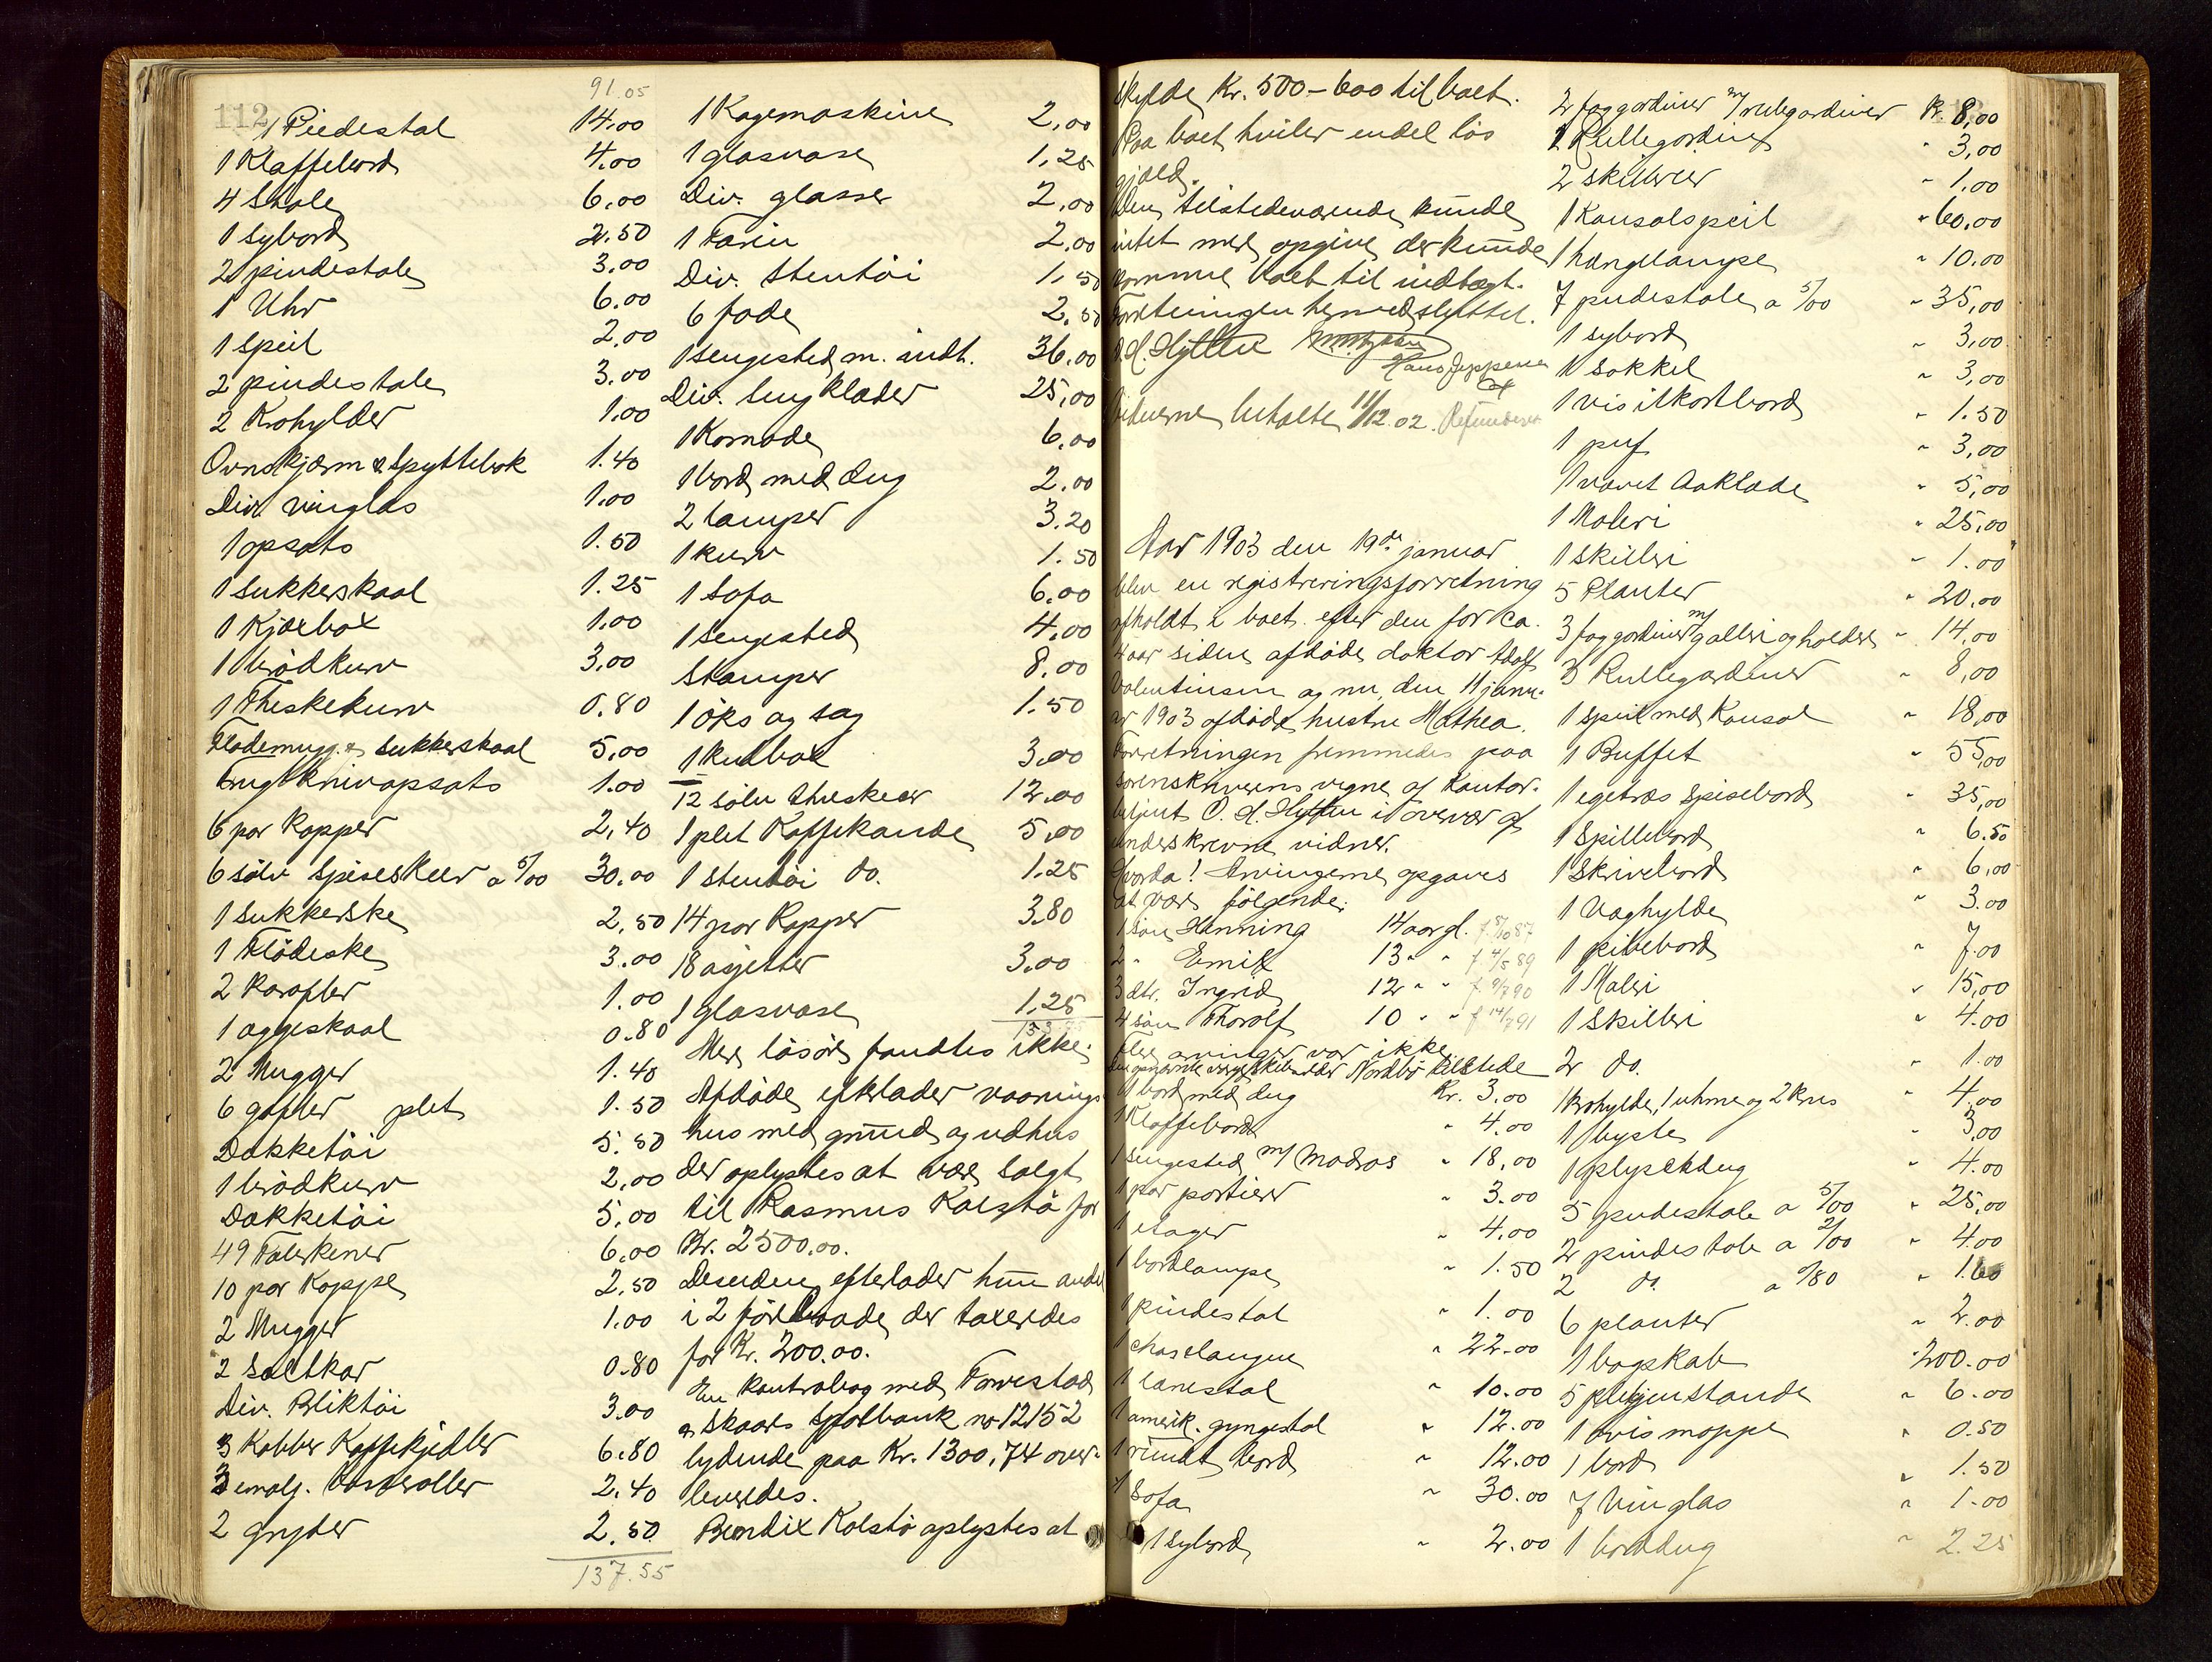 91.05
112
1 Piedestal 14.00
1 Klaffebord 4.00
4 Stole 6.00
1 Sybord 2.50
2 pindestole 3.00
1 Uhr 6.00
1 Speil 2.00
2 pindestole 3.00
2 Krohylder 1.00
Ovnskjærm & Spyttebak 1.40
Div. vinglas 1.00
1 opsats 1.50
1 Sukkerskaal 1.25
1 Kjæxbox 1.00
1 brödkurv 3.00
1 Theskekurv 0.80
Flödemugge & Sukkerskaal 5.00
Frugtknivopsats 1.00
6 par Kopper 2.40
6 sölv Spiseskeer a 5/00 30.00
1 Sukkerske 2.50
1 Flödeske 3.00
2 Karafler 1.00
1 æggeskaal 0.80
2 Mugger 1.40
6 gafler plet 1.50
Dækketöi 5.50
1 brödkurv 2.00
Dækketöi 5.00
49 Tallerkener 6.00
10 par Kopper 2.50
2 Mugger 1.00
2 Saltkar 0.80
Div. Bliktöi 3.00
3 Kobber Kaffekjedler 6.80
3 emalj. Casseroller 2.40
2 gryder 2.50
137.55
1 Kagemaskine 2,00
1 glasvase 1.25
Div. glasser 2,00
1 Terrin 2.00
Div. Stentöi 1.50
6 fade 2.50
1 Sengested m. indh. 36.00
Div. Sengklæder 25,00
1 Komode 6.00
1 bord med dug 2.00
2 lamper 3.20
1 kurv 1.50
1 Sofa 6.00
1 Sengested 4.00
Stamper 8.00
1 öks og sag 1.50
1 Kulbox 3.00
12 sölv theskeer 12.00
1 plet Kaffekande 5.00
1 Stentöi do. 1.25
14 par Kopper 3.80
18 asjetter 3.00
1 glasvase 1.25
Mere lösöre fandtes ikke.
Afdöde efterlader vaanings-
hus med grund og udhus
der oplystes at være solgt
til Rasmus Kolstö for
Kr. 2500.00.
Desuden efterlader hun andel
i 2 förebaade, der taxeredes
for Kr. 200.00.
En Kontrabog med Torvestad
& Skaare Sparebank no 12152
lydende paa Kr. 1300,74 over-
leveredes.
Bendix Kolstö oplystes at
skylde Kr. 500-600 til boet.
Paa boet hviler endel lös
gjæld.
Den tilstedeværende kunde
intet mere opgive der kunde
komme boet til indtægt.
Forretningen hermed sluttet.
O. H. Hytten
Hans Jeppesen
Vidnerne betalte 11/12.02. Refunderet
Aar 1903 den 19de januar
blev en registreringsforretning
afholdt i boet efter den for ca.
4 aar siden afdöde doktor Adolf
Valentinsen og nu, den 11 janu-
ar 1903 afdöde hustru Mathea.
Forretningen fremmedes paa
sorenskriverens vegne af Kontor-
betjent O. H. Hytten i overvær af
underskrevne vidner.
Hvorda! Arvingerne opgaves
at være fölgende:
1 sön Henning 14 aar gl.
2 " Emil 13 " " f 4/5 89
3 dtr. Ingrid 12 " " f 9/7 90
4 sön Thorolf 10 " " f 14/7 91
Flere arvinger var ikke.
Den opnævnte værge Skibsreder Nordbö tilstede
1 bord med dug Kr. 3.00
1 Klaffebord " 4.00
1 Sengested m/ Madras " 18,00
1 par portierer " 3.00
1 etager " 4.00
1 bordlampe " 1.50
1 pindestol " 1.00
1 chaselangue " 22.00
1 lænestol " 10.00
1 amerik. gyngestol " 12.00
1 rundt bord " 12.00
1 Sofa " 30.00
1 Sybord " 2.00
2 fag gardiner m/ rulegardiner Kr. 8,00
1 Rullegardin " 3,00
2 skillerier " 1.00
1 Konsolspeil " 60.00
1 hængelampe " 10.00
7 pudestole a 5/00 " 35,00
1 sybord " 3,00
1 Sokkel " 3,00
1 visitkortbord " 1.50
1 puf " 3,00
1 vævet Aaklæde " 5,00
1 Maleri " 25,00
1 Skilleri " 1.00
5 Planter " 20.00
3 fag gardiner m/ galleri og holdere " 14.00
3 Rullegardiner " 8,00
1 speil med Konsol " 18,00
1 Buffet " 55,00
1 egetræs Spisebord " 35,00
1 Spillebord " 6.50
1 Skrivebord " 6,00
1 Væghylde " 3.00
1 pibebord " 7.00
1 Maleri " 15,00
1 Skilleri " 4.00
2 do. " 1.00
1 krohylde, 1 uhrne og 2 krus " 4.00
1 byste " 3,00
1 plyschdug " 4.00
5 pudestole a 5/00 " 25,00
2 pindestole a 2/00 " 4.00
2 do. a 0/80 " 1.60
6 planter " 2.00
1 bogskab " 200.00
5 pletgjenstande " 6.00
1 avismappe " 0.50
1 bord " 1.50
7 Vinglas " 1.00
1 borddug " 2.25